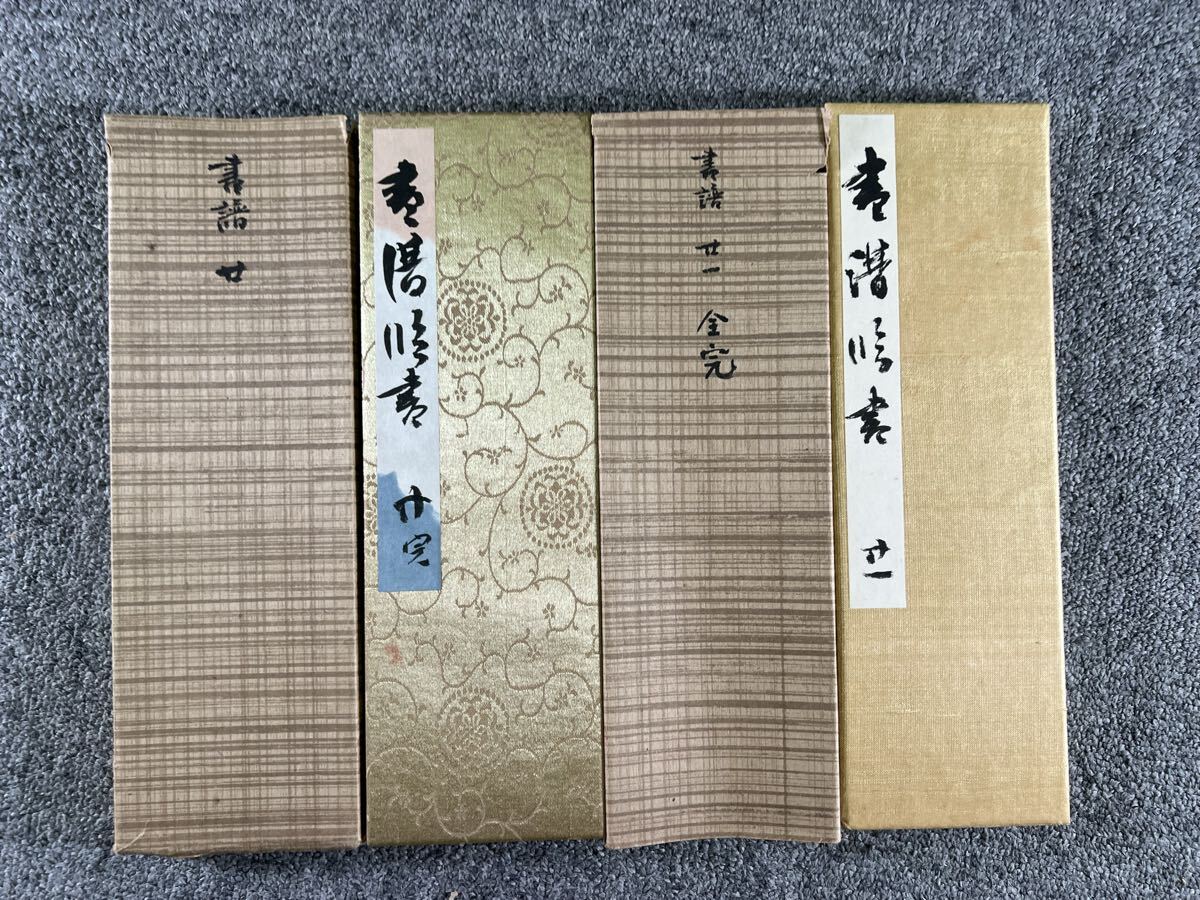 書譜 廿
書譜臨書 廿完
書譜 廿一 全完
書譜臨書 廿一